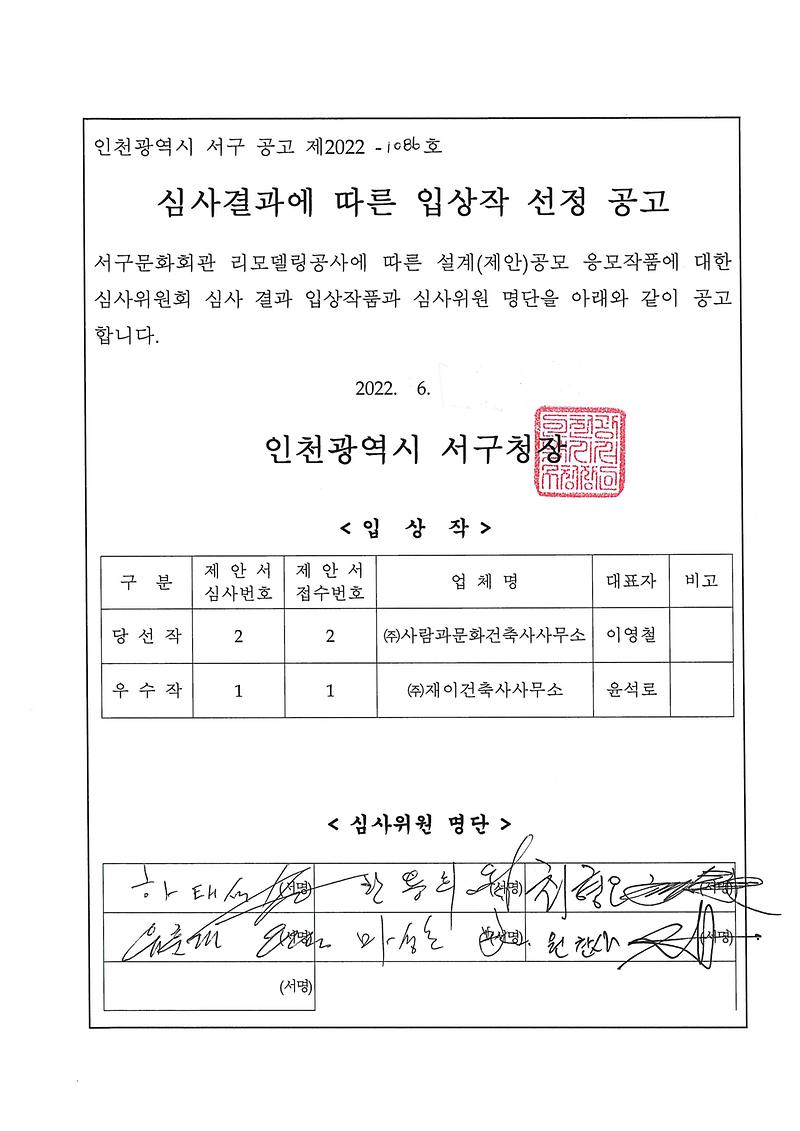 인천광역시 서구 공고 제2022 -1086호
심사결과에 따른 입상작 선정 공고
서구문화회관 리모델링공사에 따른 설계(제안)공모 응모작품에 대한
심사위원회 심사 결과 입상작품과 심사위원 명단을 아래와 같이 공고
합니다.
2022. 6.
인천광역시 서구청장
< 입 상 작 >
구 분 제 안 서 심사번호 제 안 서 접수번호 업 체 명 대표자 비고
당 선 작 2 2 ㈜사람과문화건축사사무소 이영철
우 수 작 1 1 ㈜재이건축사사무소 윤석로
< 심사위원 명단 >
하 태석 (서명) 한 용 희 (서명) (서명)
(서명) 마 (서명) 원 (서명)
(서명)